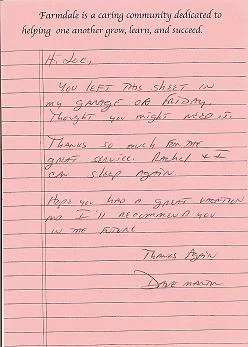 Farmdale is a caring community dedicated to
helping one another grow, learn, and succeed.
Hi Joe,
You left this sheet in
my garage on Friday.
Thought you might need it.
Thanks so much for the
great service. Rachel & I
can sleep again.
Hope you had a great vacation
and I'll recommend you
in the future
Thanks Again
Dave Martin